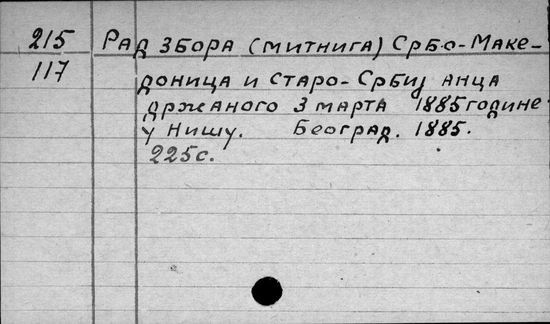 215 Рад збора (митнига) Србо-Маке-
117
доница и старо-Србијанца
држаног 3 марта 1885 године
у Нишу. Београд. 1885.
225 с.